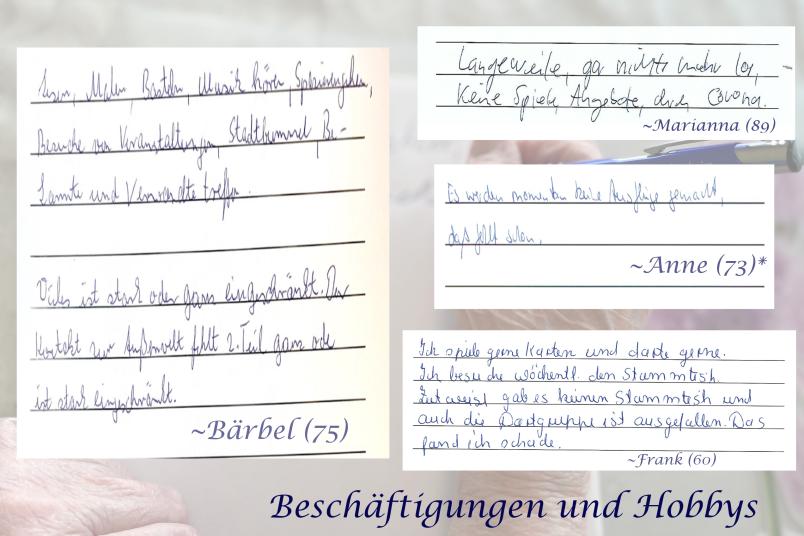 Lesen, Malen, Basteln, Musik hören, Spazierengehen,
Besuche von Veranstaltungen, Stadtbummel, Be-
kannte und Verwandte treffen.
Vieles ist stark oder ganz eingeschränkt. Der
Kontakt zur Außenwelt fehlt z. Teil ganz oder
ist stark eingeschränkt.
~Bärbel (75)
Langeweile, gar nichts mehr los,
Keine Spiele, Angebote, durch Corona.
~Marianna (89)
Es werden momentan keine Ausflüge gemacht,
das fehlt schon.
~Anne (73)*
Ich spiele gerne Karten und darte gerne.
Ich besuche wöchentl. den Stammtisch.
Zeitweise gab es keinen Stammtisch und
auch die Dartgruppe ist ausgefallen. Das
fand ich schade.
~Frank (60)
Beschäftigungen und Hobbys